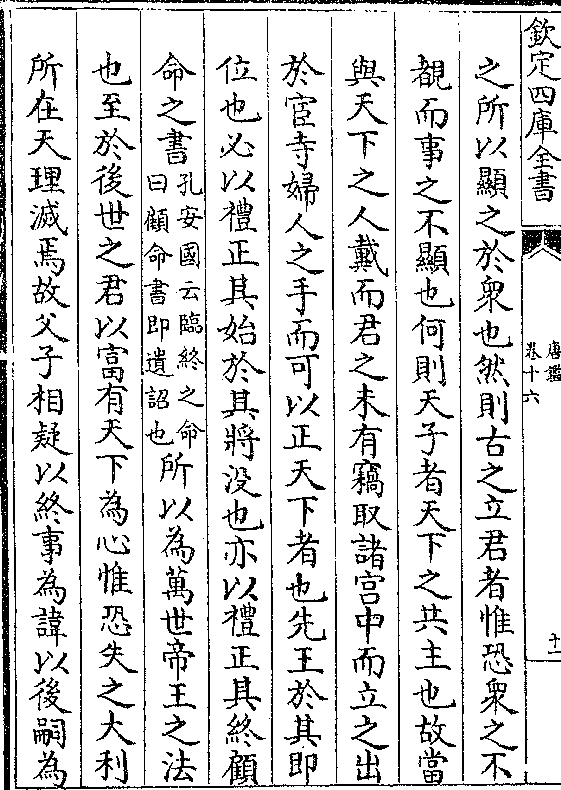 欽定四庫全書
唐鑑
卷十六
十一
之所以顯之於衆也然則古之立君者惟恐衆之不
覩而事之不顯也何則天子者天下之共主也故當
與天下之人戴而君之未有竊取諸宫中而立之出
於宦寺婦人之手而可以正天下者也先王於其即
位也必以禮正其始於其將没也亦以禮正其終顧
命之書孔安國云臨終之命曰顧命書即遺詔也所以為萬世帝王之法
也至於後世之君以富有天下為心惟恐失之大利
所在天理滅焉故父子相疑以終事為諱以後嗣為